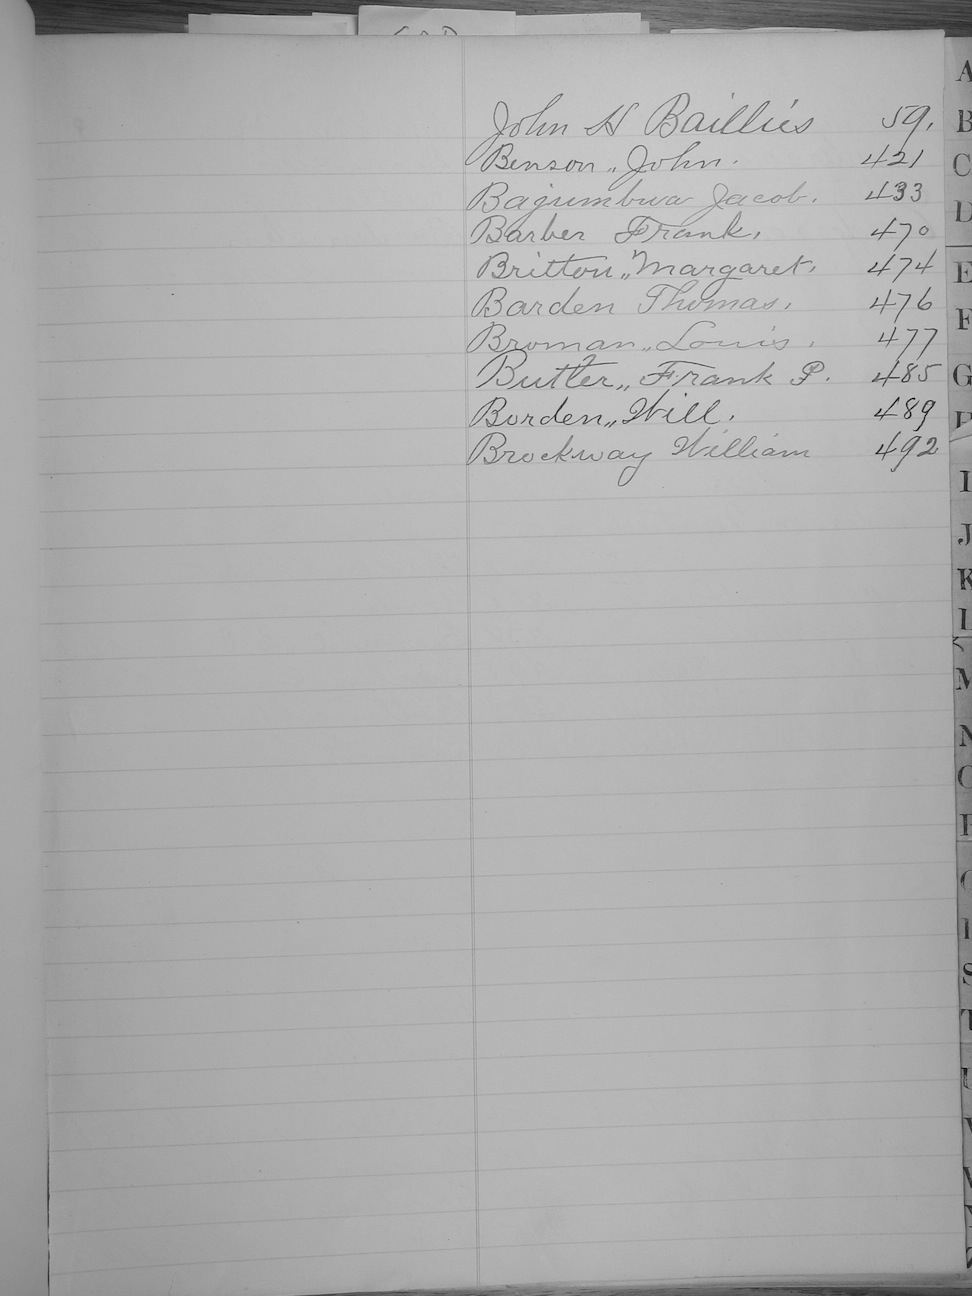 John H Baillies 59.
Benson,, John. 421
Bajumbwa Jacob. 433
Barber Frank. 470
Britton,, Margaret. 474
Barden Thomas. 476
Broman,, Louis. 477
Butler,, Frank P. 485
Borden,, Will. 489
Brockway William 492
A
B
C
D
E
F
G
H
I
J
K
L
M
N
O
P
S
T
U
V